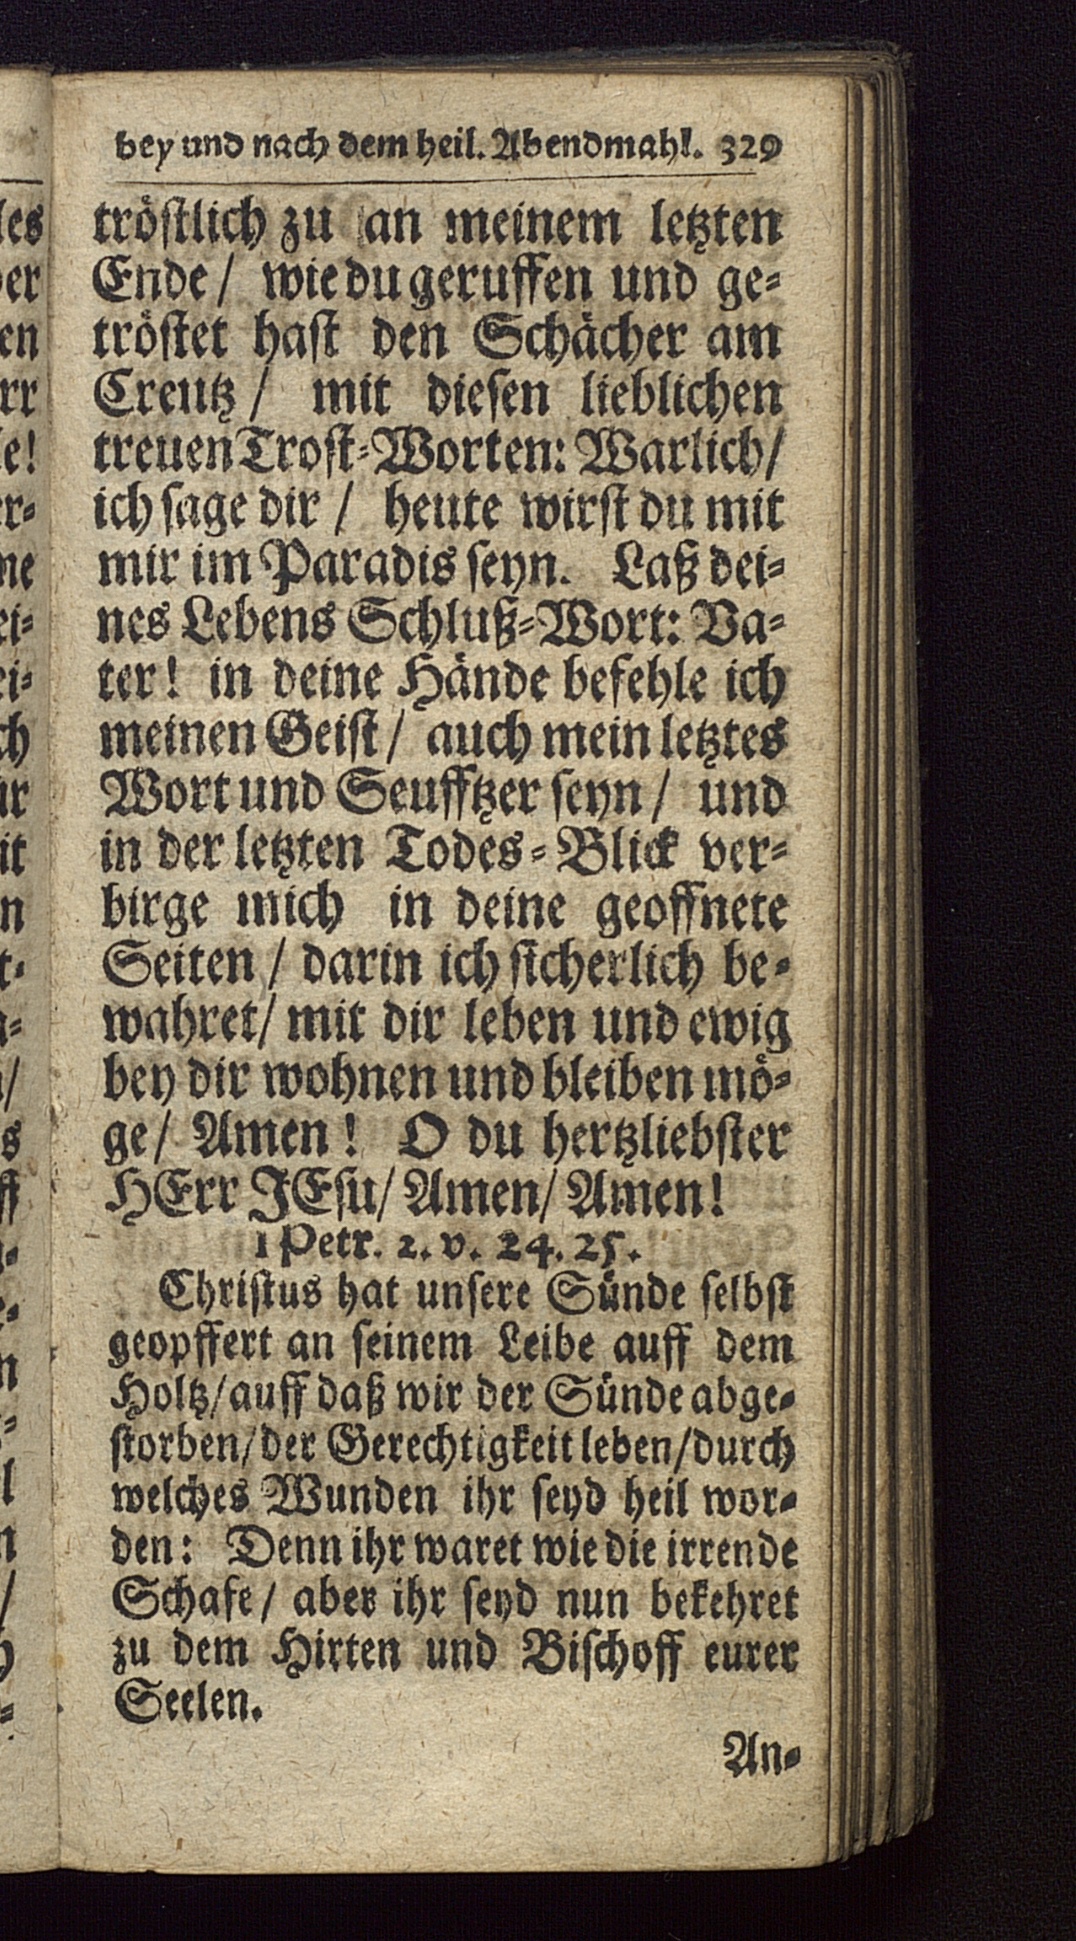 bey und nach dem heil. Abendmahl. 329
tröstlich zu an meinem letzten
Ende / wie du geruffen und ge-
tröstet hast den Schächer am
Creutz / mit diesen lieblichen
treuen Trost-Worten: Warlich/
ich sage dir / heute wirst du mit
mir im Paradis seyn. Laß dei-
nes Lebens Schluß-Wort: Va-
ter! in deine Hände befehle ich
meinen Geist / auch mein letztes
Wort und Seufftzer seyn / und
in der letzten Todes-Blick ver-
birge mich in deine geoffnete
Seiten / darin ich sicherlich be-
wahret/ mit dir leben und ewig
bey dir wohnen und bleiben mö-
ge/ Amen! O du hertzliebster
HErr JEsu/ Amen/ Amen!
1 Petr. 2. v. 24. 25.
Christus hat unsere Sünde selbst
geopffert an seinem Leibe auff dem
Holtz/auff daß wir der Sünde abge-
storben/der Gerechtigkeit leben/durch
welches Wunden ihr seyd heil wor-
den: Denn ihr waret wie die irrende
Schafe / aber ihr seyd nun bekehret
zu dem Hirten und Bischoff eurer
Seelen.
An-